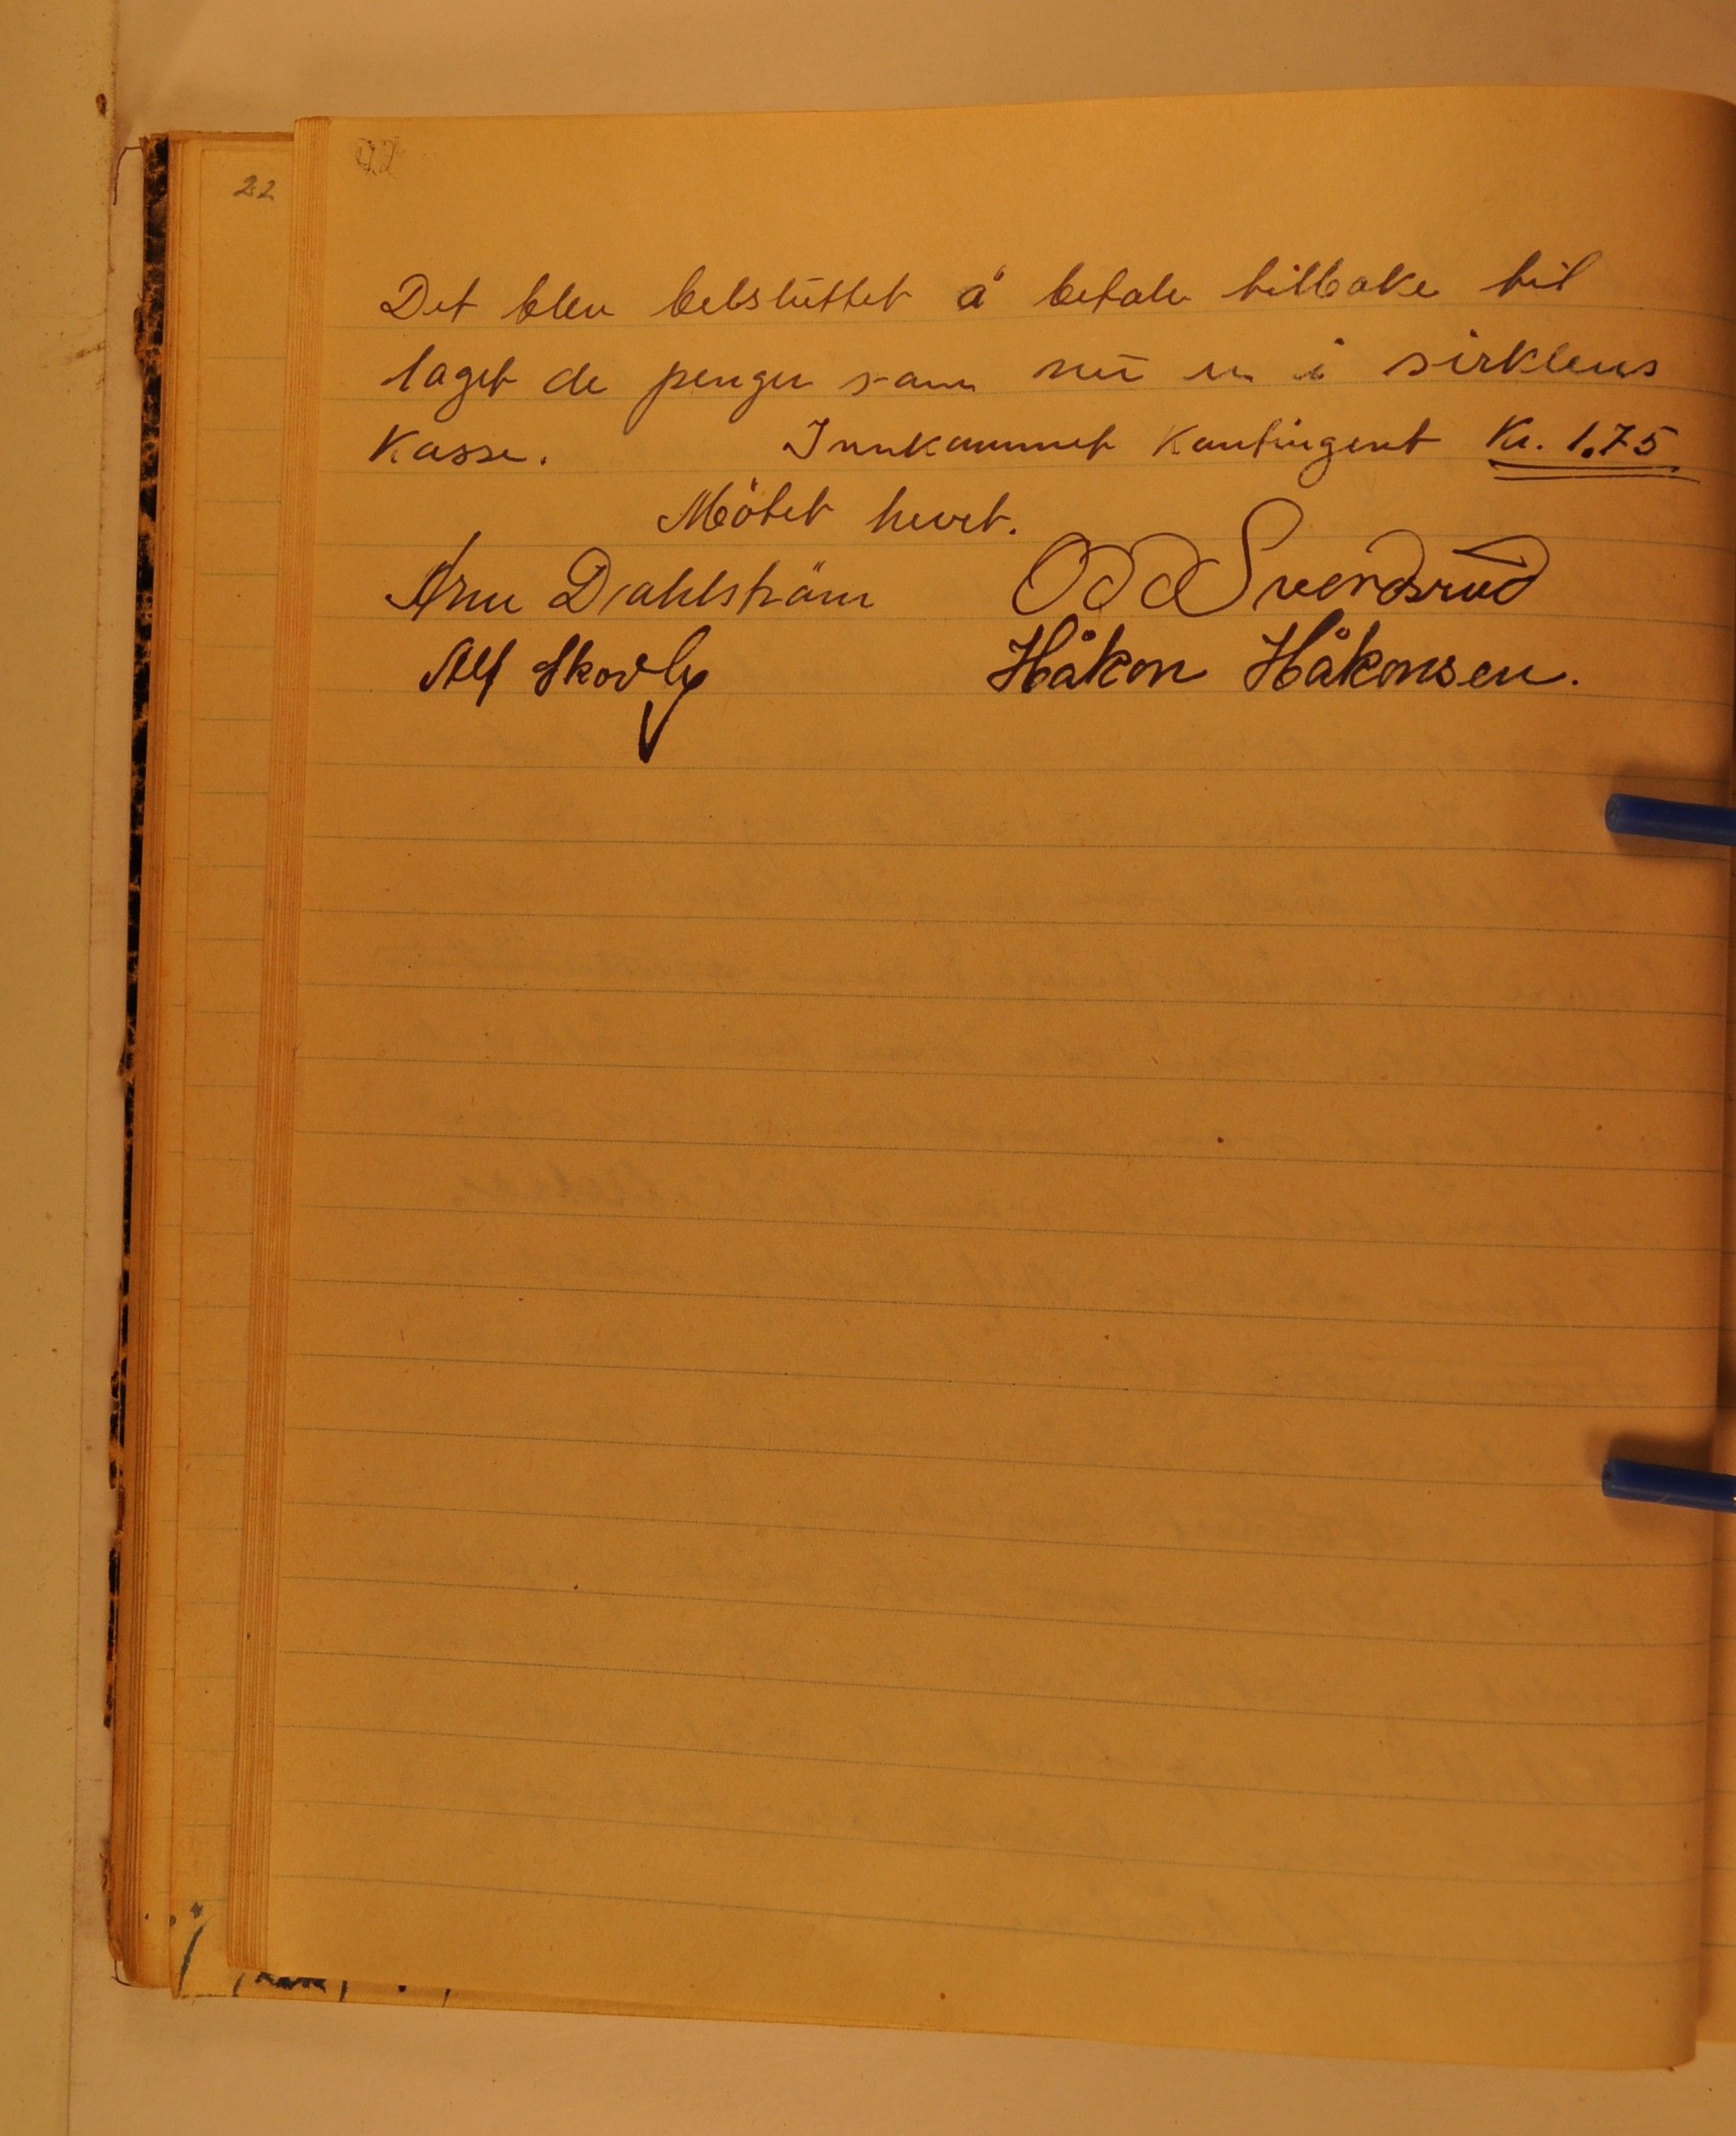 22
92
Det blev belsluttet å betale tilbake til
laget de penger som nu er i sirklens
kasse. Innkommet kontingent Kr. 1.75
Møtet hevet.
Arne Dahlström Odd Sverdsrud
Alf Skovly Håkon Håkonsen.